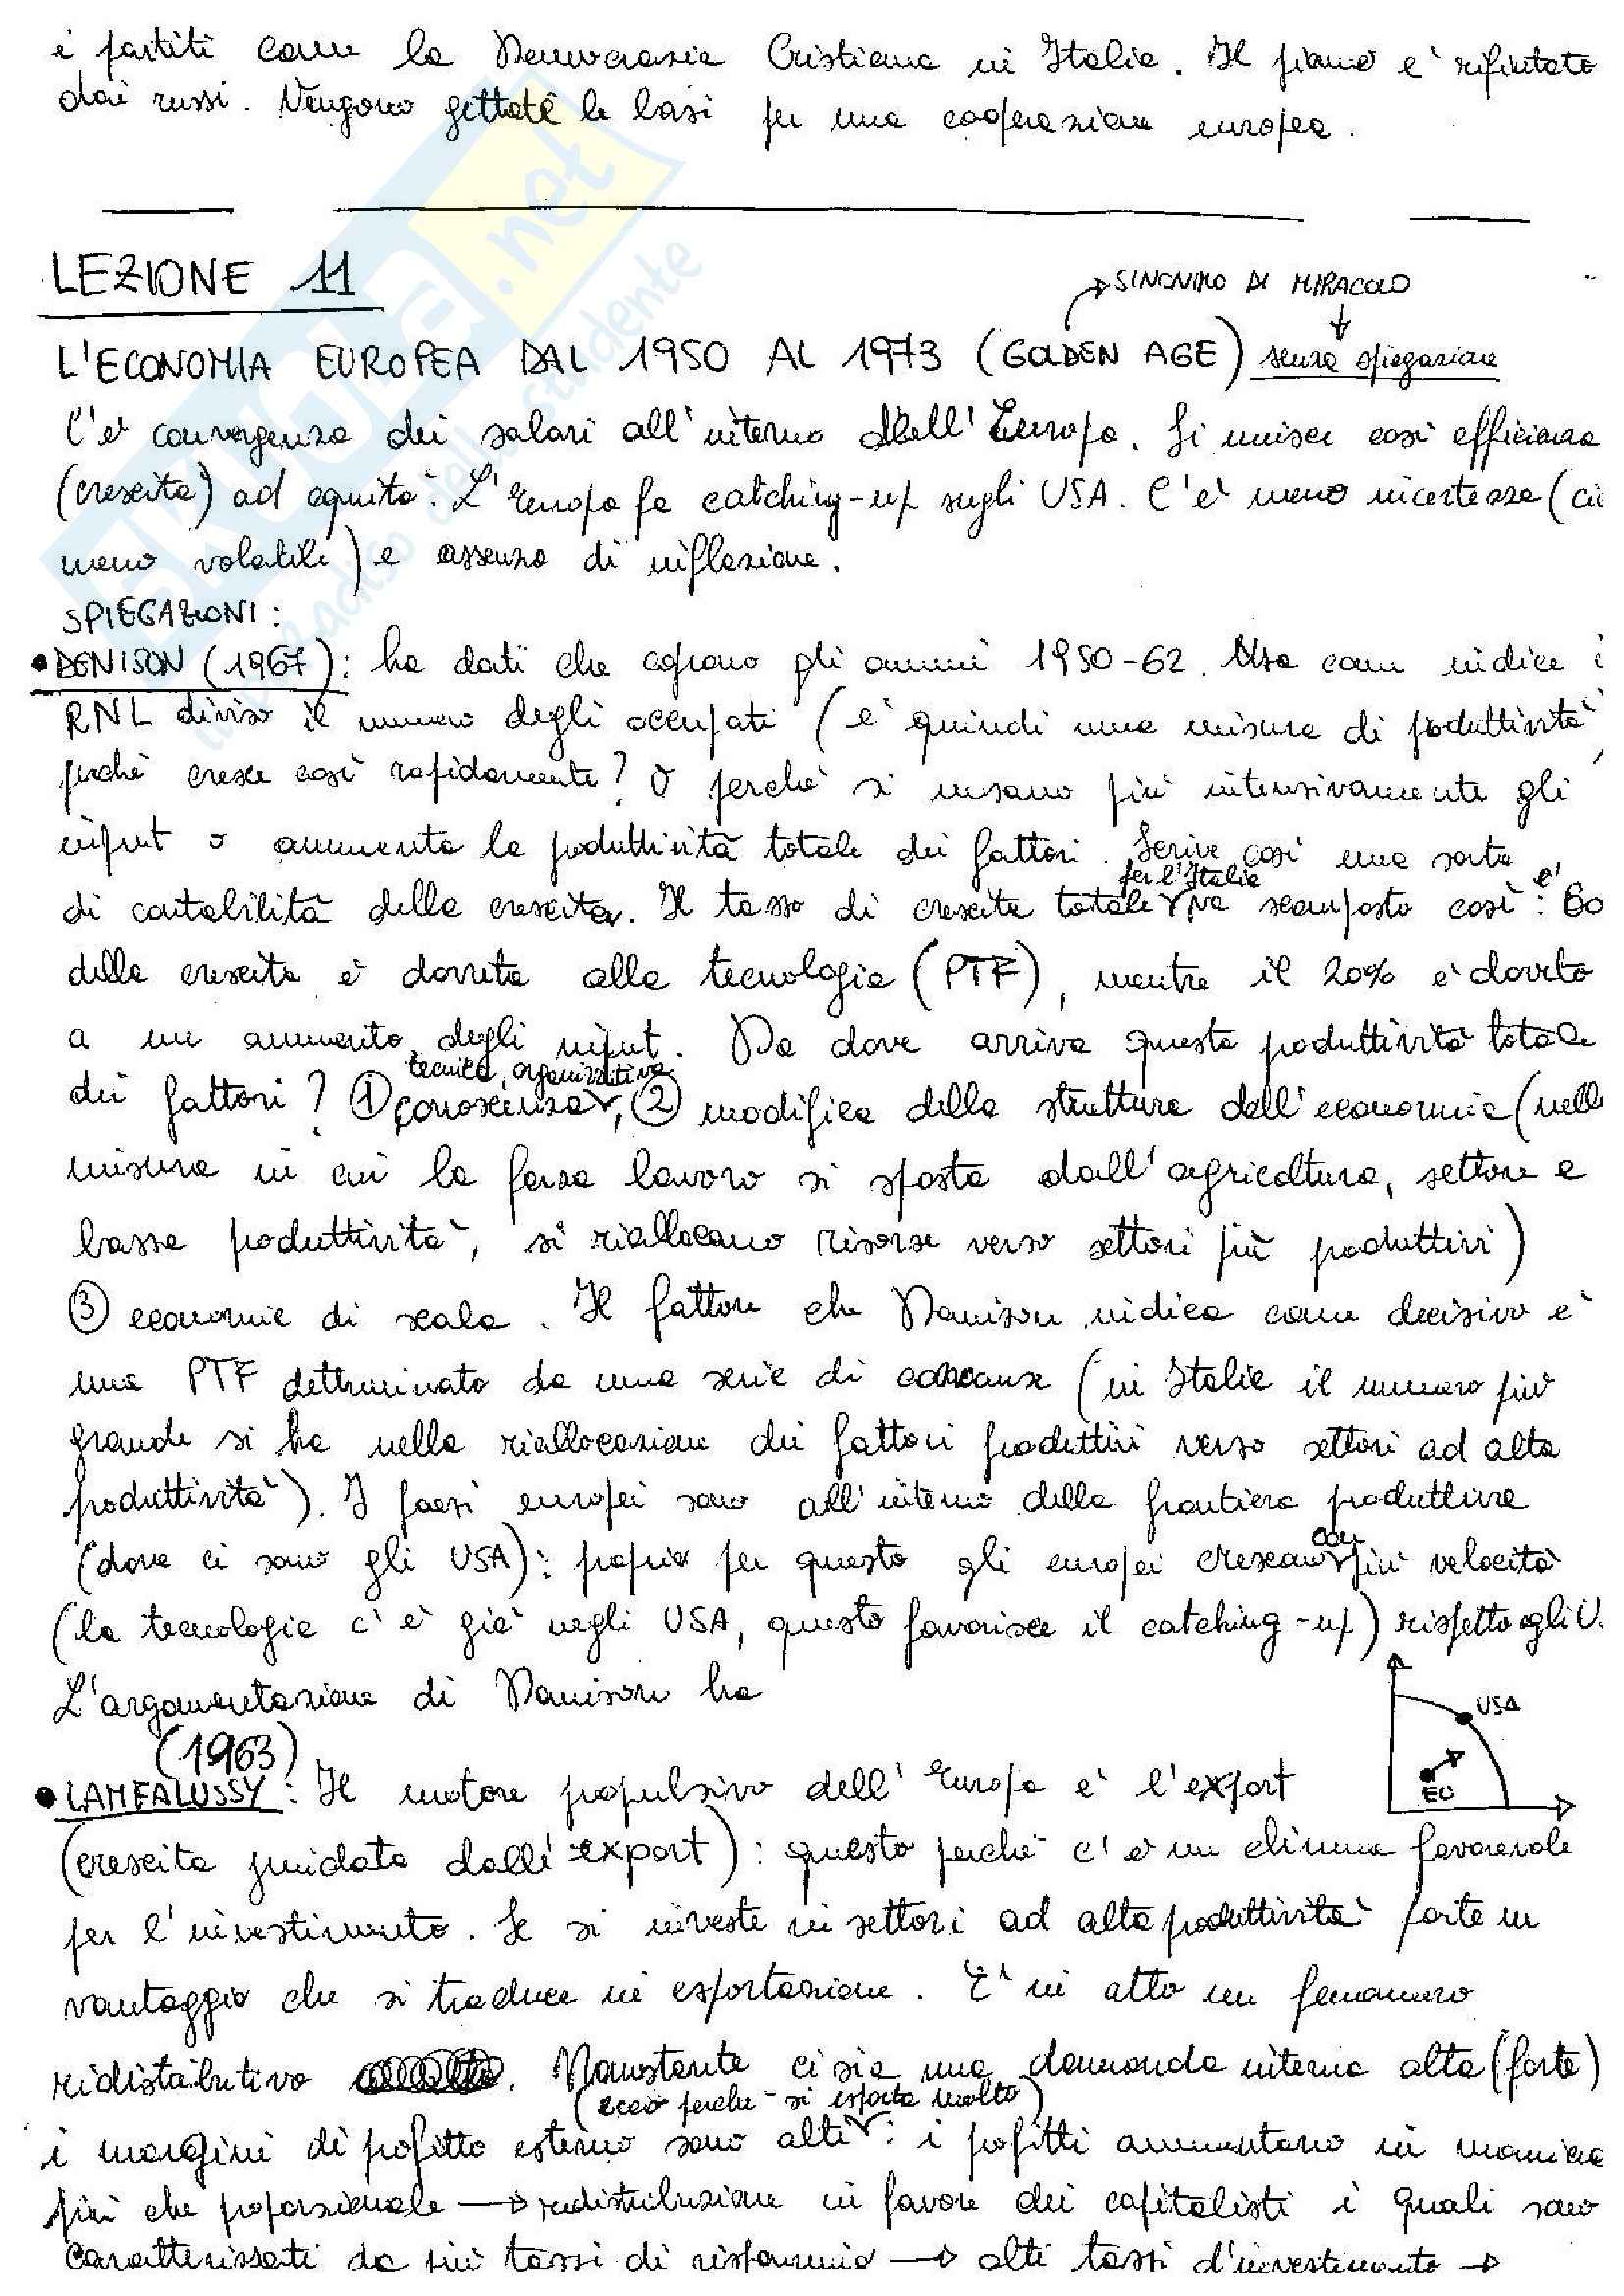 e partiti come la Democrazia Cristiana in Italia. Il piano è rifiutato
dai russi. Vengono gettate le basi per una cooperazione europea.
LEZIONE 11
SINONIMO DI MIRACOLO
L'ECONOMIA EUROPEA DAL 1950 AL 1973 (GOLDEN AGE) senza spiegazione
C'è convergenza dei salari all'interno dell'Europa. Si unisce così efficienza
(crescita) ad equità. L'Europa fa catching-up sugli USA. C'è meno incertezza (
meno volatili) e assenza di inflazione.
SPIEGAZIONI:
• DENISON (1967): ha dati che coprono gli anni 1950-62. Usa come indice i
RNL diviso il numero degli occupati (è quindi una misura di produttività)
perchè cresce così rapidamente? O perchè si usano più intensivamente gli
input o aumenta la produttività totale dei fattori. Scrive così una sorta
di contabilità della crescita. Il tasso di crescita totale per l'Italia va scomposto così: è 80
della crescita è dovuta alla tecnologia (PTF), mentre il 20% è dovuto
a un aumento degli input. Da dove arriva questa produttività totale
dei fattori? ① conoscenza tecnica, organizzativa, ② modifica della struttura dell'economia (nella
misura in cui la forza lavoro si sposta dall'agricoltura, settore a
bassa produttività, si riallocano risorse verso settori più produttivi)
③ economie di scala. Il fattore che Denison indica come decisivo è
una PTF determinato da una serie di concause (in Italia il numero più
grande si ha nella riallocazione dei fattori produttivi verso settori ad alta
produttività). I paesi europei sono all'interno della frontiera produttiva
(dove ci sono gli USA): proprio per questo gli europei crescano con più velocità
(la tecnologia c'è già negli USA, questo favorisce il catching-up) rispetto agli U.
L'argomentazione di Denison ha
USA
EU
(1963)
• LAMFALUSSY: Il motore propulsivo dell'Europa è l'export
(crescita guidata dall'export): questo perchè c'è un clima favorevole
per l'investimento. Se si investe in settori ad alta produttività porta un
vantaggio che si traduce in esportazione. E' in atto un fenomeno
ridistributivo. Nonostante ci sia una domanda interna alta (forte)
i margini di profitto esterno sono alti (ecco perchè si esporta molto): i profitti aumentano in maniera
più che proporzionale → redistribuzione in favore dei capitalisti i quali sono
caratterizzati da più tassi di risparmio → alti tassi d'investimento →